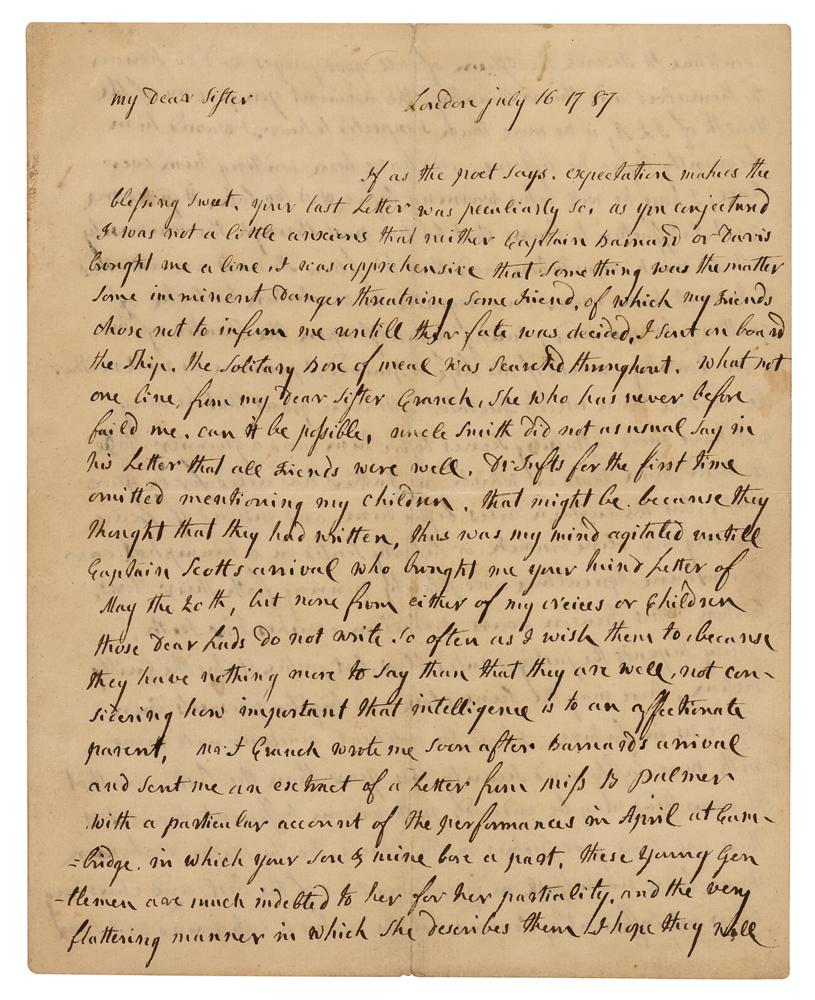 my Dear Sister London july 16 1787
If as the poet says. expectation makes the
blessing sweet. your last Letter was peculiarly so, as you conjectured
I was not a little anxious that neither Captain Barnard or Davis
brought me a line, I was apprehensive that something was the matter
some imminent Danger threatning some Friend, of which my Friends
chose not to inform me untill their fate was decided, I sent on board
the Ship. the Solitary Box of meal was searchd throughout. what not
one line, from my Dear Sister Cranch, she who has never before
faild me. can it be possible, uncle Smith did not as usual say in
his Letter that all Friends were well. Dr Tufts for the first time
omitted mentioning my children, that might be because they
thought that they had written, thus was my mind agitated untill
Captain Scotts arrival who brought me your kind Letter of
May the 20th, but none from either of my Neices or Children
those Dear Lads do not write so often as I wish them to, because
they have nothing more to say than that they are well, not con-
sidering how important that intelligence is to an affectionate
parent, mr J Cranch wrote me soon after Barnards arrival
and sent me an extract of a Letter from miss B Palmer
with a particular account of the performances in April at Cam-
=bridge. in which your son & mine bore a part. these Young Gen
-tlemen are much indebted to her for her partiality, and the very
flattering manner in which she describes them I hope they will